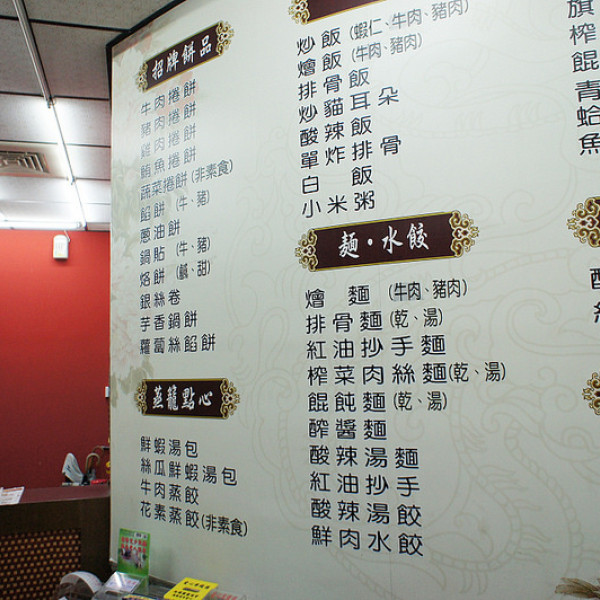 招牌餅品
牛肉捲餅
豬肉捲餅
雞肉捲餅
鮪魚捲餅
蔬菜捲餅(非素食)
餡餅(牛、豬)
蔥油餅
鍋貼(牛、豬)
烙餅(鹹、甜)
銀絲卷
芋香鍋餅
蘿蔔絲餡餅
蒸籠點心
鮮蝦湯包
絲瓜鮮蝦湯包
牛肉蒸餃
花素蒸餃(非素食)
炒飯(蝦仁、牛肉、豬肉)
燴飯(牛肉、豬肉)
排骨飯
炒貓耳朵
酸辣飯
單炸排骨
白飯
小米粥
麵・水餃
燴麵(牛肉、豬肉)
排骨麵(乾、湯)
紅油抄手麵
榨菜肉絲麵(乾、湯)
餛飩麵(乾、湯)
醡醬麵
酸辣湯麵
紅油抄手
酸辣湯餃
鮮肉水餃
旗
榨
餛
青
蛤
魚